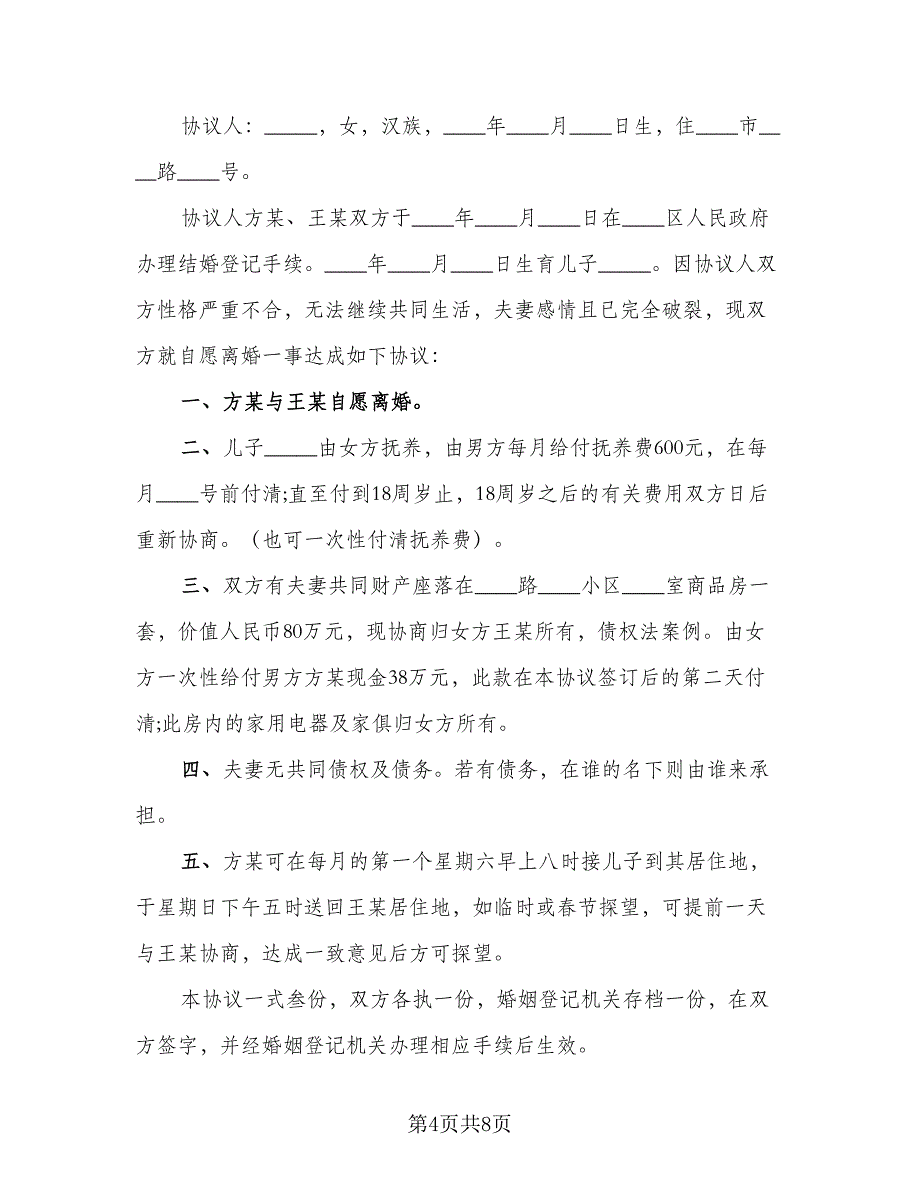 协议人：_____，女，汉族，____年____月____日生，住____市__
__路____号。
协议人方某、王某双方于____年____月____日在____区人民政府
办理结婚登记手续。____年____月____日生育儿子_____。因协议人双
方性格严重不合，无法继续共同生活，夫妻感情且已完全破裂，现双
方就自愿离婚一事达成如下协议：
一、方某与王某自愿离婚。
二、儿子_____由女方抚养，由男方每月给付抚养费600元，在每
月____号前付清;直至付到18周岁止，18周岁之后的有关费用双方日后
重新协商。（也可一次性付清抚养费）。
三、双方有夫妻共同财产座落在____路____小区____室商品房一
套，价值人民币80万元，现协商归女方王某所有，债权法案例。由女
方一次性给付男方方某现金38万元，此款在本协议签订后的第二天付
清;此房内的家用电器及家俱归女方所有。
四、夫妻无共同债权及债务。若有债务，在谁的名下则由谁来承
担。
五、方某可在每月的第一个星期六早上八时接儿子到其居住地，
于星期日下午五时送回王某居住地，如临时或春节探望，可提前一天
与王某协商，达成一致意见后方可探望。
本协议一式叁份，双方各执一份，婚姻登记机关存档一份，在双
方签字，并经婚姻登记机关办理相应手续后生效。
第4页共8页